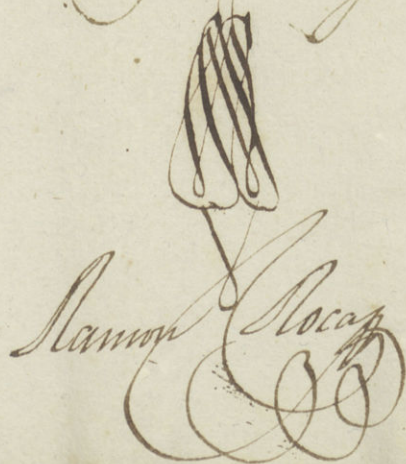 Ramon Roca